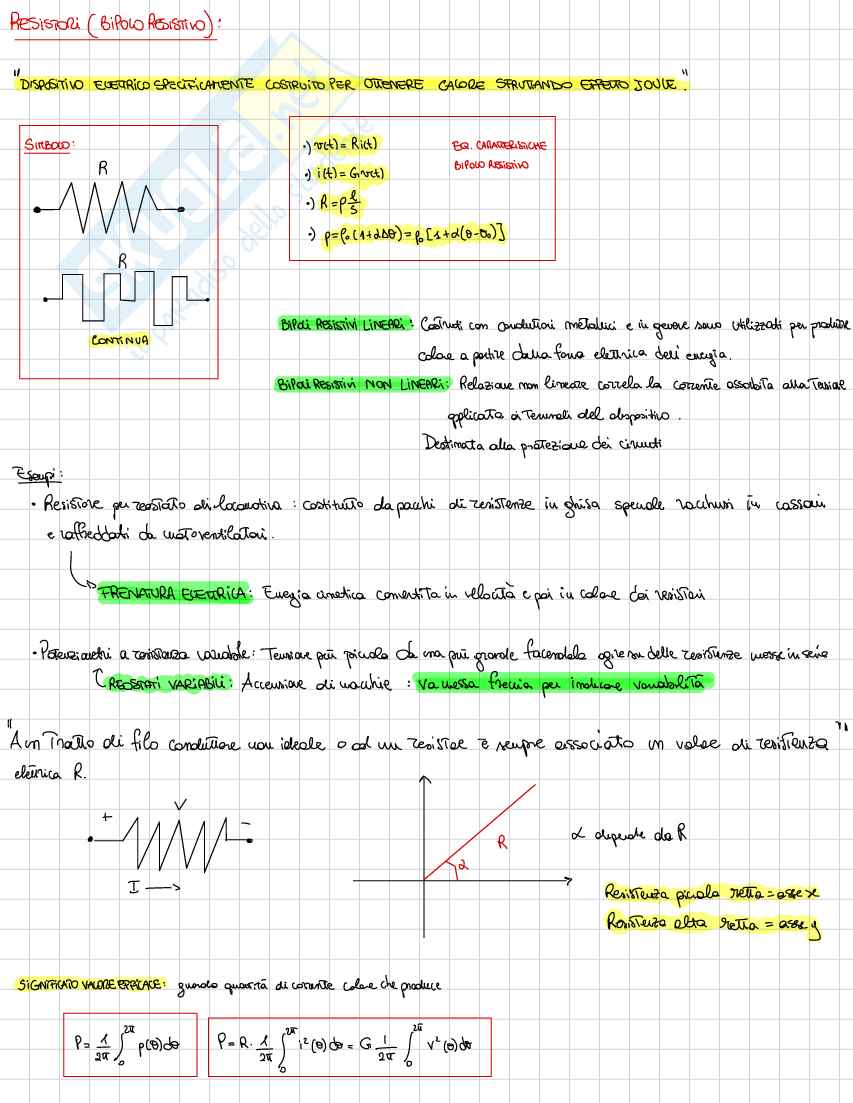 RESISTORI (BIPOLO RESISTIVO):
"DISPOSITIVO ELETTRICO SPECIFICAMENTE COSTRUITO PER OTTENERE CALORE SFRUTTANDO EFFETTO JOULE."
SIMBOLO:
R
R
CONTINUA
·) v(t) = Ri(t)
·) i(t) = Gv(t)
·) R = ρ l/S
·) ρ = ρ₀(1+αΔθ) = ρ₀[1+α(θ-θ₀)]
EQ. CARATTERISTICHE
BIPOLO RESISTIVO
BIPOLI RESISTIVI LINEARI: Costruiti con conduttori metallici e in genere sono utilizzati per produrre
calore a partire dalla forma elettrica dell'energia.
BIPOLI RESISTIVI NON LINEARI: Relazione non lineare correla la corrente assorbita alla tensione
applicata ai terminali del dispositivo.
Destinata alla protezione dei circuiti
Esempi:
· Resistore per reostato di locomotiva: costituito da pacchi di resistenze in ghisa speciale racchiusi in cassoni
e raffreddati da motoventilatori.
FRENATURA ELETTRICA: Energia cinetica convertita in velocità e poi in calore dai resistori
· Potenziometri a resistenza variabile: Tensione più piccola da una più grande facendola agire su delle resistenze messe in serie
REOSTATI VARIABILI: Accensione di macchie: va messa freccia per indicare variabilità
"A un tratto di filo conduttore non ideale o ad un resistore è sempre associato un valore di resistenza"
elettrica R.
+ V -
I
R
α
α dipende da R
Resistenza piccola retta = asse x
Resistenza alta retta = asse y
SIGNIFICATO VALORE EFFICACE: guardo quantità di corrente calore che produce
P = 1/2π ∫₀^2π p(θ)dθ
P = R · 1/2π ∫₀^2π i²(θ)dθ = G 1/2π ∫₀^2π v²(θ)dθ
SKUOLA.net
il paradiso dello studente